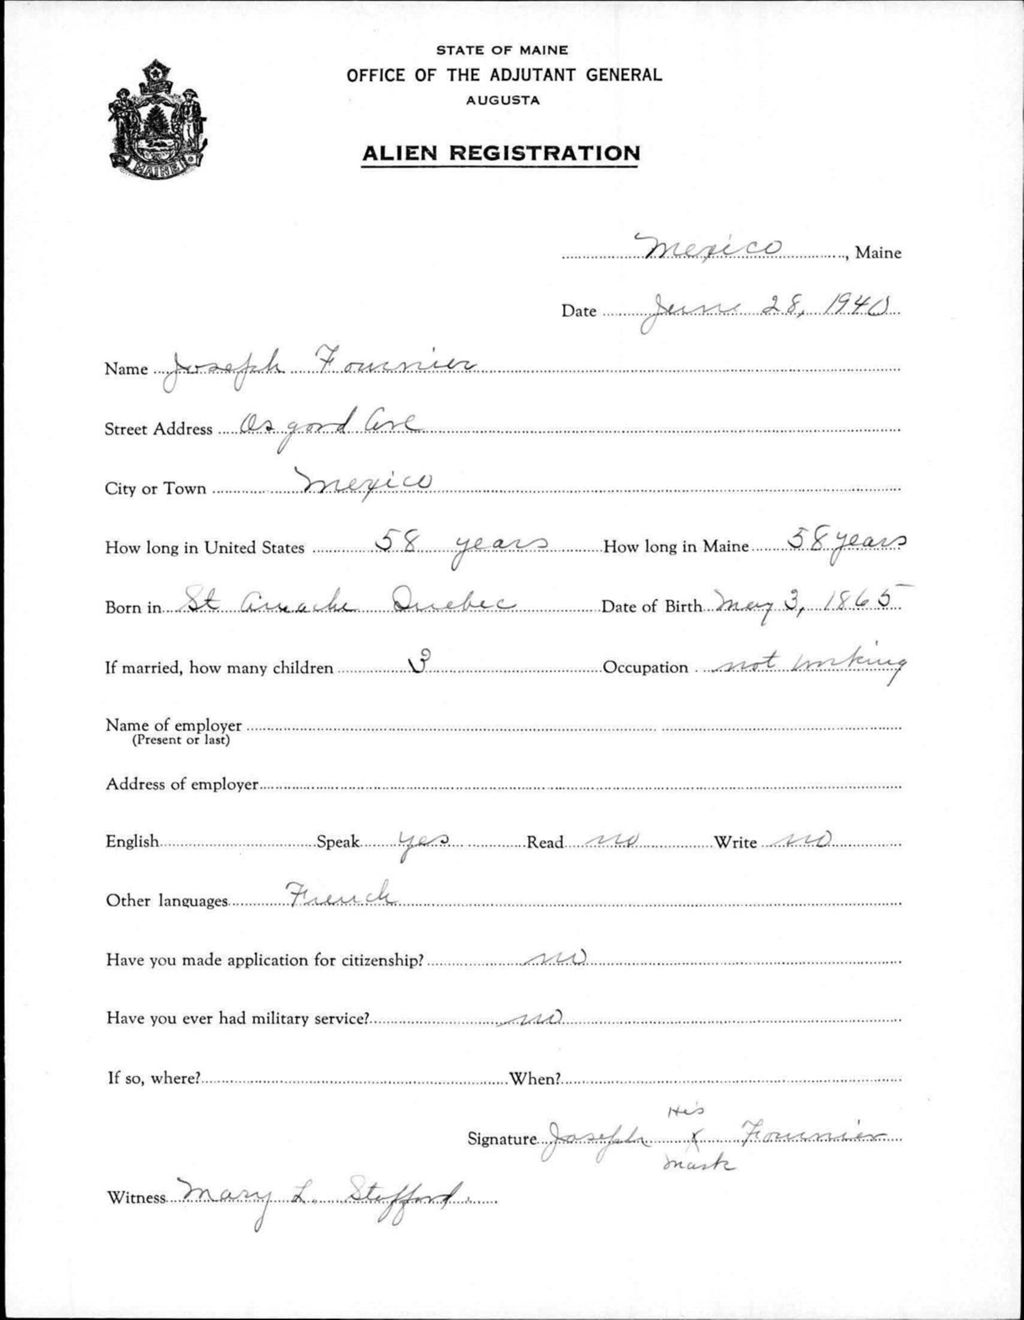 STATE OF MAINE
OFFICE OF THE ADJUTANT GENERAL
AUGUSTA
ALIEN REGISTRATION
MAINE
Mexico, Maine
Date June 28, 1940
Name Joseph Fournier
Street Address Osgood Ave
City or Town Mexico
How long in United States 58 years How long in Maine 58 years
Born in St Quebec Date of Birth May 3, 1865
If married, how many children 3 Occupation not working
Name of employer
(Present or last)
Address of employer
English Speak yes Read no Write no
Other languages French
Have you made application for citizenship? no
Have you ever had military service? no
If so, where? When?
His
Signature Joseph X Fournier
mark
Witness Mary L. Stafford.